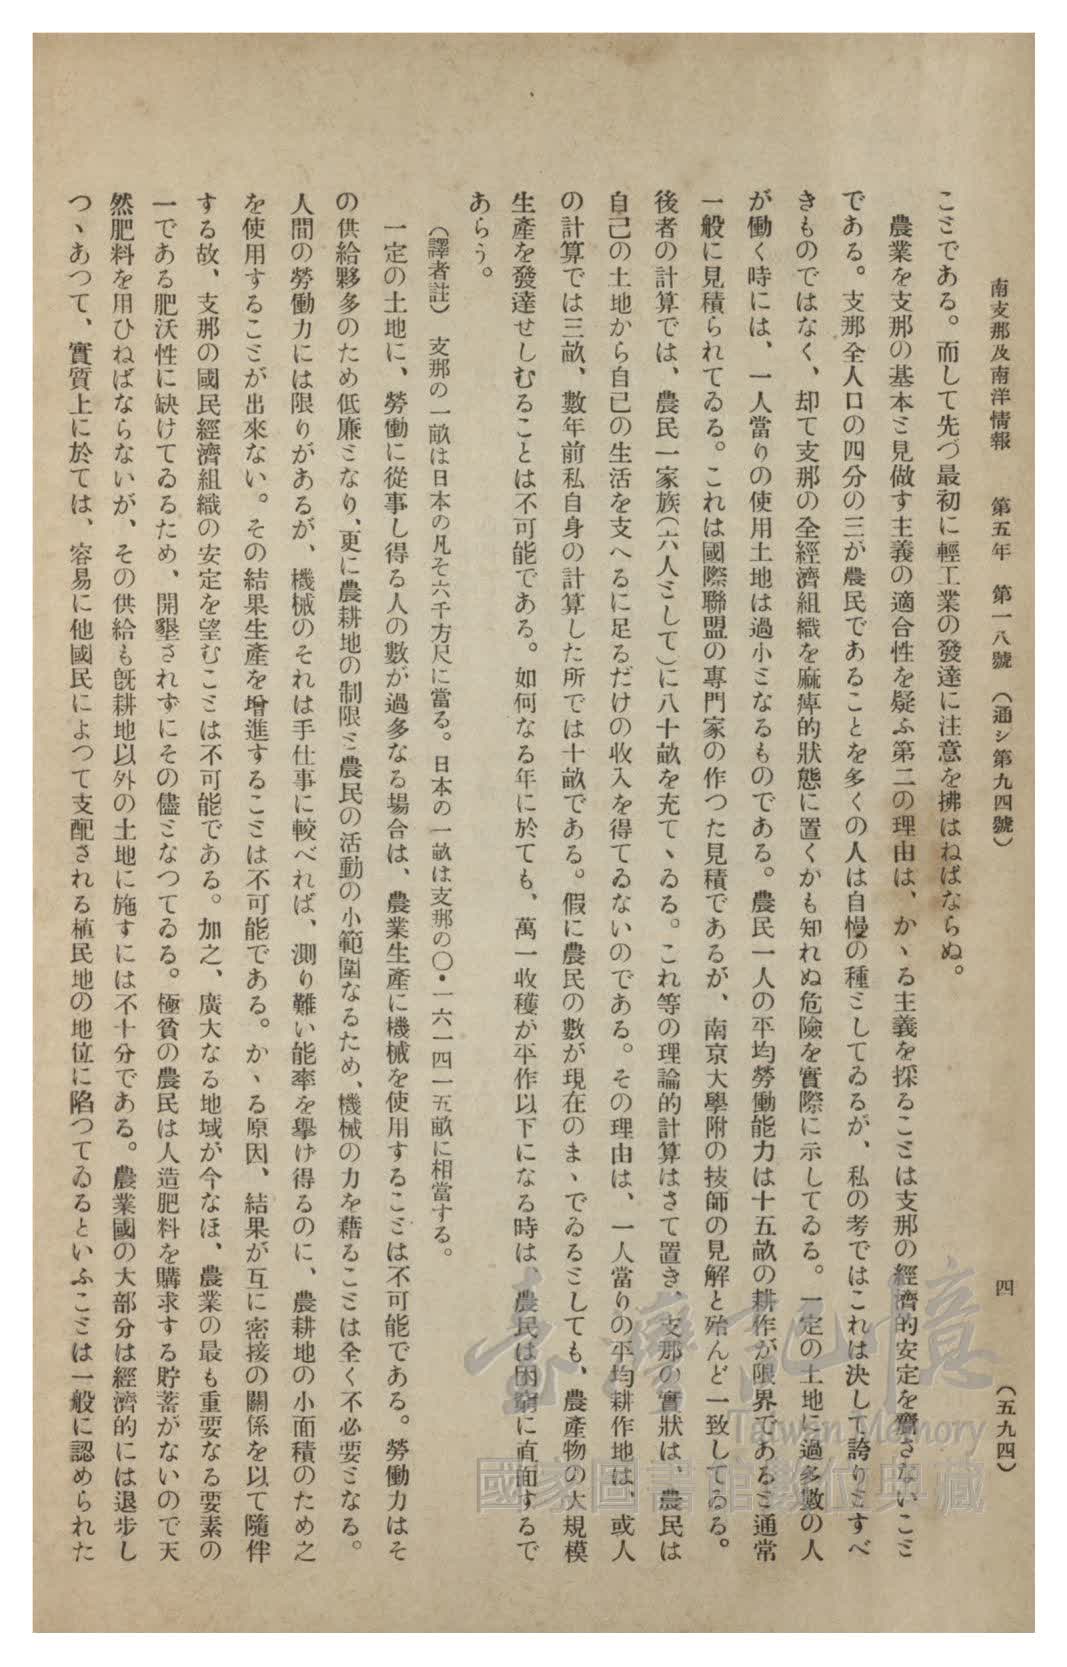 南支那及南洋情報　第五年　第一八號　（通シ第九四號）　四　（五九四）
こヾである。而して先づ最初に輕工業の發達に注意を拂はねばならぬ。
農業を支那の基本ヾ見做す主義の適合性を疑ふ第二の理由は、かゝる主義を採るこヾは支那の經濟的安定を齎さないこヾ
である。支那全人口の四分の三が農民であることを多くの人は自慢の種ヾしてゐるが、私の考ではこれは決して誇りヾすべ
きものではなく、却て支那の全經濟組織を麻痺的狀態に置くかも知れぬ危險を實際に示してゐる。一定の土地に過多數の人
が働く時には、一人當りの使用土地は過小ヾなるものである。農民一人の平均勞働能力は十五畝の耕作が限界であるヾ通常
一般に見積られてゐる。これは國際聯盟の專門家の作つた見積であるが、南京大學附の技師の見解と殆んど一致してゐる。
後者の計算では、農民一家族（六人ヾして）に八十畝を充てゝゐる。これ等の理論的計算はさて置き、支那の實狀は、農民は
自己の土地から自己の生活を支へるに足るだけの收入を得てゐないのである。その理由は、一人當りの平均耕作地は、或人
の計算では三畝、數年前私自身の計算した所では十畝である。假に農民の數が現在のまゝでゐるヾしても、農產物の大規模
生產を發達せしむることは不可能である。如何なる年に於ても、萬一收穫が平作以下になる時は、農民は困窮に直面するで
あらう。
（譯者註）　支那の一畝は日本の凡そ六千方尺に當る。日本の一畝は支那の〇・一六一四一五畝に相當する。
一定の土地に、勞働に從事し得る人の數が過多なる場合は、農業生產に機械を使用するこヾは不可能である。勞働力はそ
の供給夥多のため低廉ヾなり、更に農耕地の制限ヾ農民の活動の小範圍なるため、機械の力を藉るこヾは全く不必要ヾなる。
人間の勞働力には限りがあるが、機械のそれは手仕事に較べれば、測り難い能率を擧げ得るのに、農耕地の小面積のため之
を使用するこヾが出來ない。その結果生產を增進するこヾは不可能である。かゝる原因、結果が互に密接の關係を以て隨伴
する故、支那の國民經濟組織の安定を望むこヾは不可能である。加之、廣大なる地域が今なほ、農業の最も重要なる要素の
一である肥沃性に缺けてゐるため、開墾されずにその儘ヾなつてゐる。極貧の農民は人造肥料を購求する貯蓄がないので天
然肥料を用ひねばならないが、その供給も旣耕地以外の土地に施すには不十分である。農業國の大部分は經濟的には退步し
つゝあつて、實質上に於ては、容易に他國民によつて支配される植民地の地位に陷つてゐるといふこヾは一般に認められた
臺灣記憶
Taiwan Memory
國家圖書館數位典藏